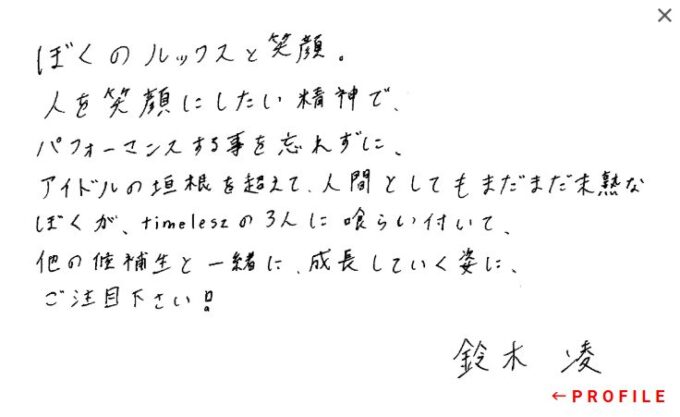 ぼくのルックスと笑顔。
人を笑顔にしたい精神で、
パフォーマンスする事を忘れずに、
アイドルの垣根を超えて、人間としてもまだまだ未熟な
ぼくが、timeleszの3人に喰らい付いて、
他の候補生と一緒に、成長していく姿に、
ご注目下さい!
鈴木 凌
←PROFILE